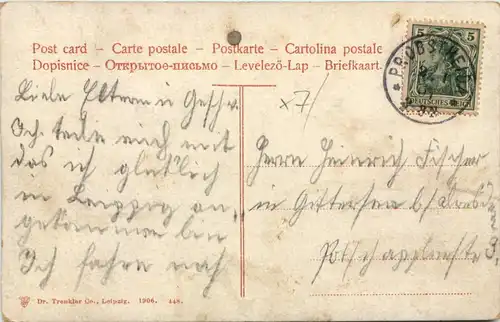 Post card – Carte postale – Postkarte – Cartolina postale
Dopisnice – Открытое-письмо – Levelező-Lap – Briefkaart.
5 5
DEUTSCHES REICH
* PROBSTHEIDA
x7/
Liebe Eltern u Geschw.
Ich teile euch mit
das ich glücklich
in Leipzig an,
gekommen bin
Ich fahre nach
Herrn Heinrich Fischer
in Gittersee b/ Dresden
Potschappelerstr
Dr. Trenkler Co., Leipzig. 1906. 448.